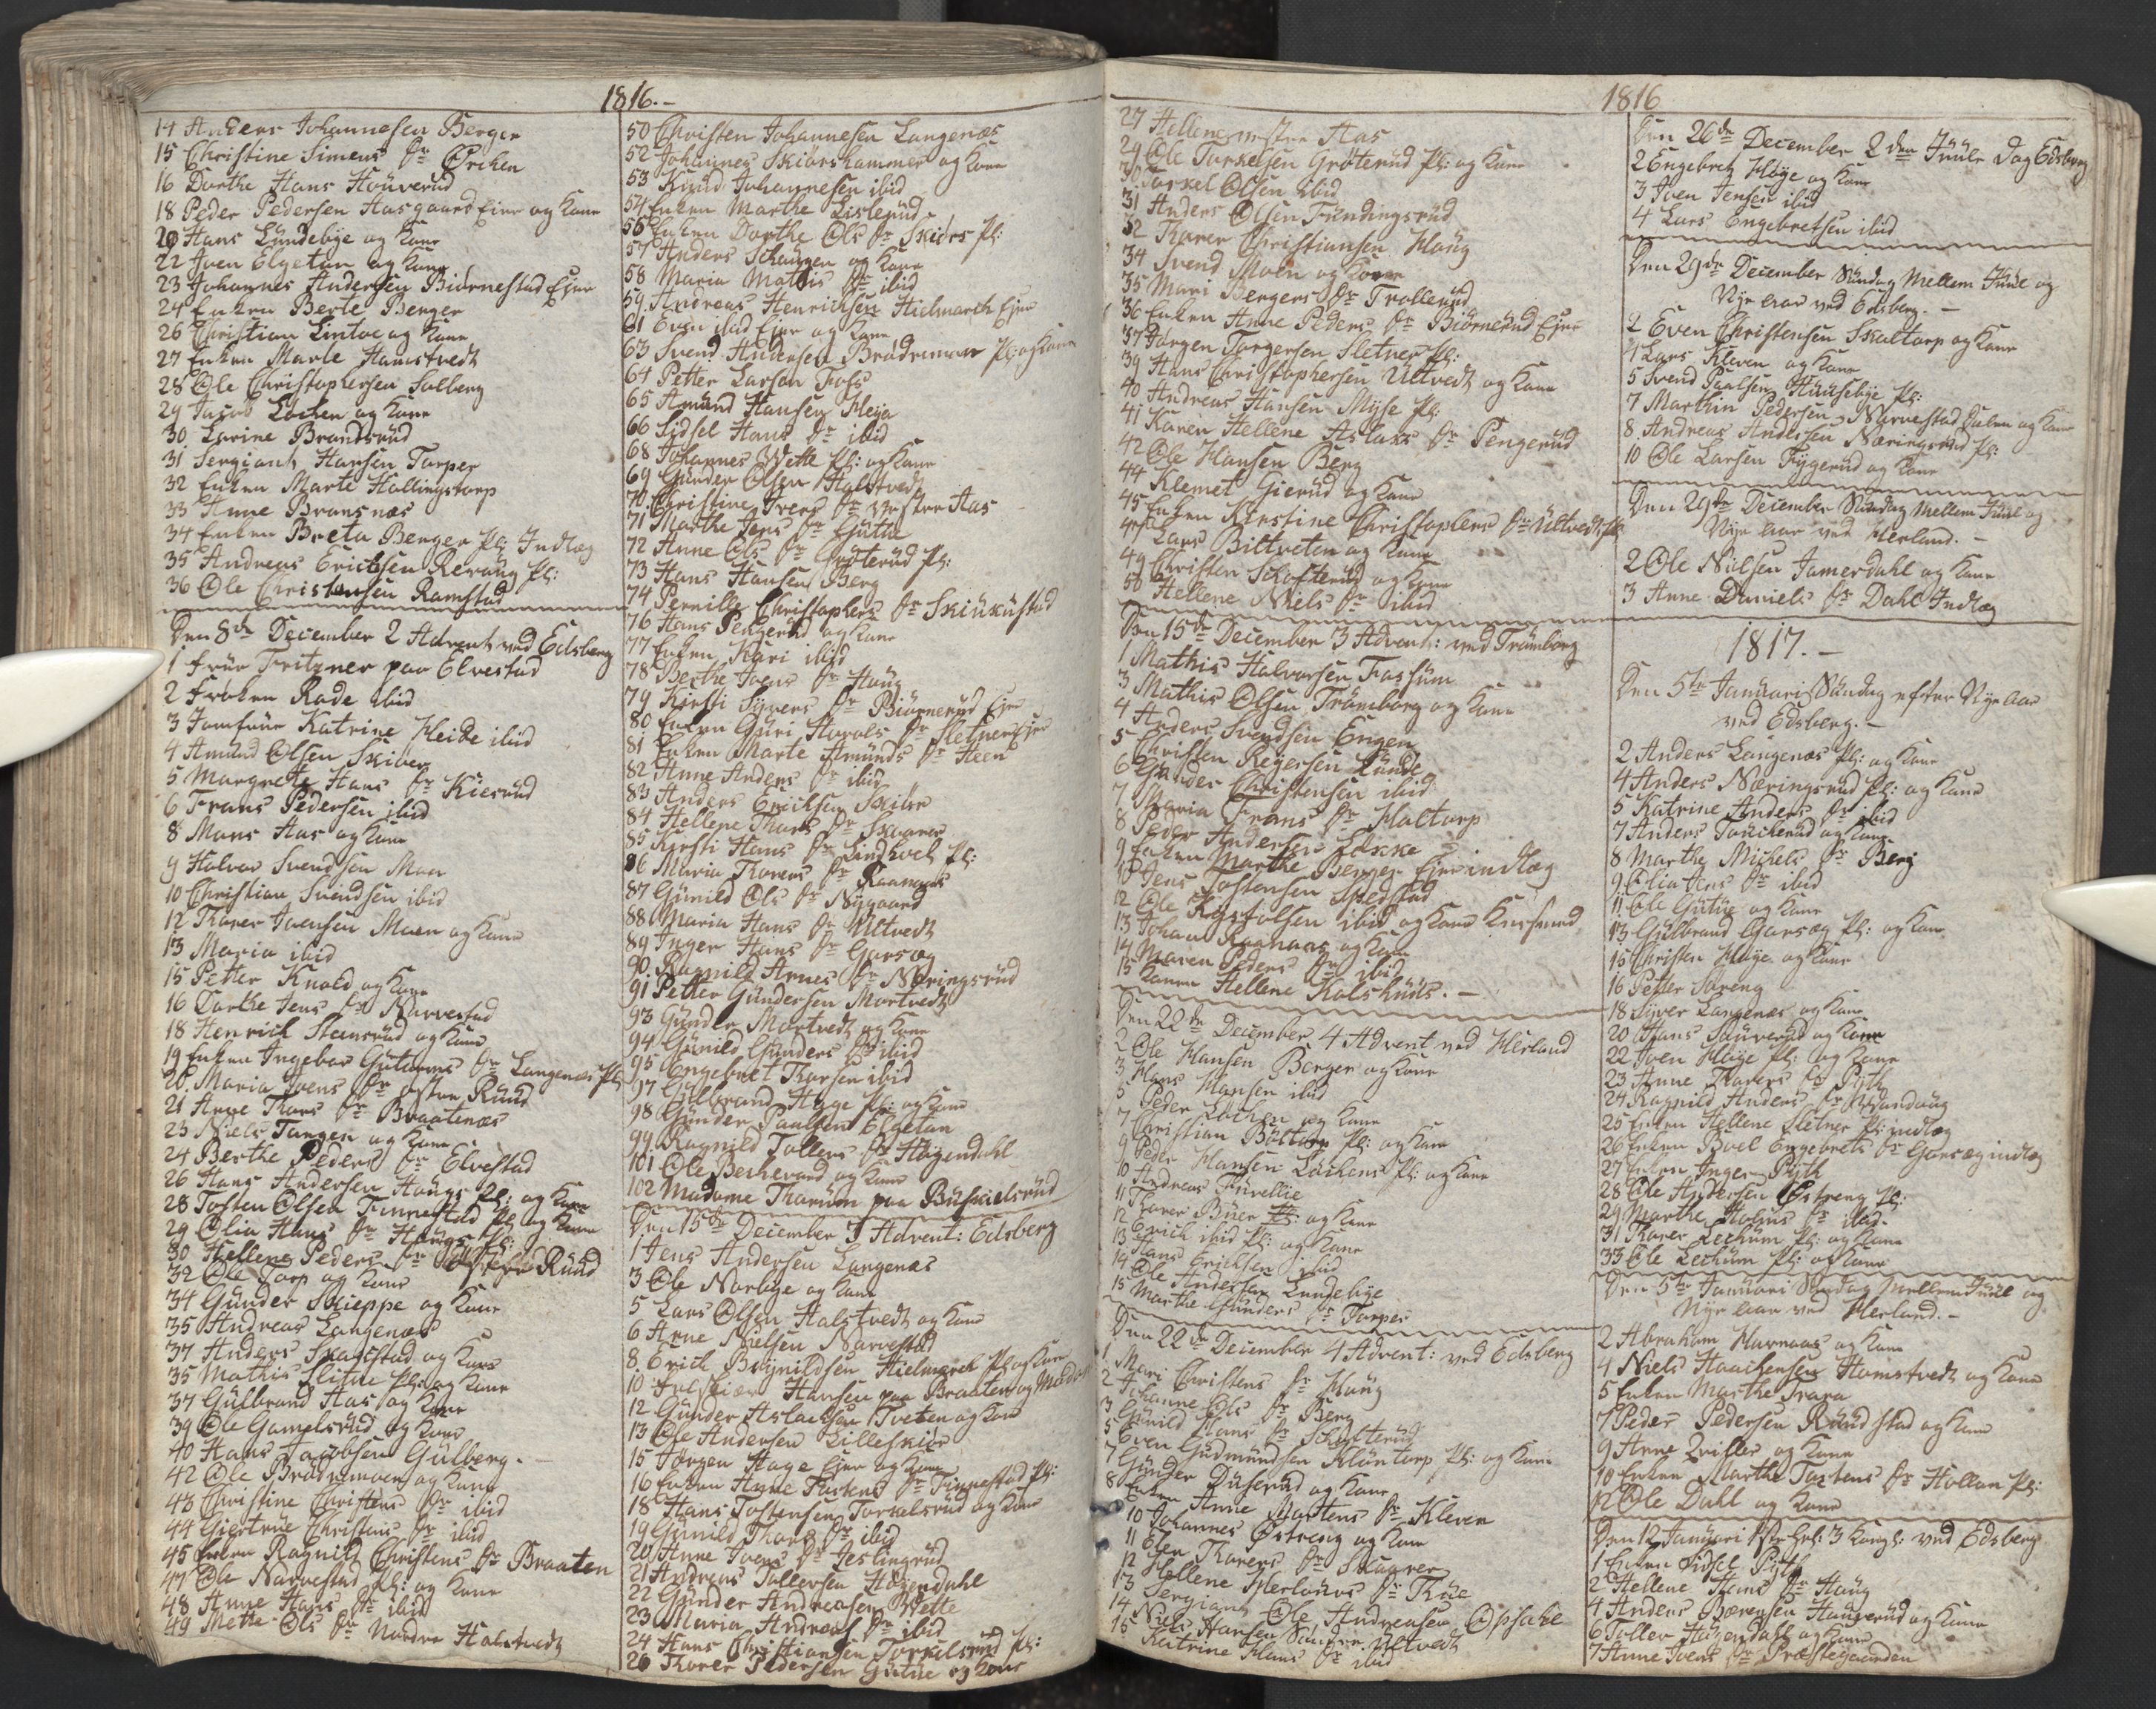 1816.-
14 Anders Johannesen Berger
15 Christine Simens Dr Ørchen
16 Dorthe Hans Houverud
18 Peder Pedersen Aasgaard Ejer og Kone
20 Hans Lundebye og Kone
22 Iven Elgetun og Kone
23 Johannes Andersen Biørnestad Ejer
24 Enken Berte Berger
26 Christian Lintoe og Kone
27 Enken Marte Hamstvedt
28 Ole Christophersen Solberg
29 Jacob Lochen og Kone
30 Larine Brandsrud
31 Sergiant Hansen Torper
32 Enken Marte Hallingstorp
33 Anne Bransnæs
34 Enken Breta Berger Pl: Indlæg
35 Andreas Erichsen Reraug Pl:
36 Ole Christensen Ramstad
Den 8de December 2 Advent ved Edsberg
1 Frue Fritzner paa Elvestad
2 Frøken Rade ibid
3 Jomfrue Katrine Heide ibid
4 Amund Olsen Skiber
5 Margrete Hans Dr Kierud
6 Frans Pedersen ibid
8 Mons Aas og Kone
9 Halvor Svendsen Moen
10 Christian Svendsen ibid
12 Thorer Ivensen Moen og Kone
13 Maria ibid
15 Petter Knold og Kone
16 Dorthe Jens Dr Narvestad
18 Henrich Steensrud og Kone
19 Enken Ingebor Gutorms Dr Langenæs Pl:
20 Maria Ivens Dr østre Ruud
21 Anne Thors Dr Braatenæs
23 Niels Tangen og Kone
24 Berthe Peders Dr Elvestad
26 Hans Andersen Haugs Pl: og Kone
28 Tosten Olsen Finnestad Pl: og Kone
29 Olia Hans Dr Haugs Pl:
30 Hellene Peders Dr Østre Ruud
32 Ole Torp og Kone
34 Gunder Skieppe og Kone
35 Andreas Langenæs
37 Anders Skaltstad og Kone
35 Mathis Slitu Pl: og Kone
37 Gulbrand Aas og Kone
39 Ole Gamelsrud og Kone
40 Hans Jacobsen Gulberg.-
42 Ole Brødremoen og Kone
43 Christine Christens Dr ibid
44 Giertrue Christens Dr ibid
45 Enken Ragnild Christens Dr Braaten
47 Ole Narvestad Pl: og Kone
48 Anne Hans Dr ibid
49 Mette Ols Dr Nordre Halstvedt
50 Christen Johannesen Langenæs
52 Johannes Skiørshammer og Kone
53 Knud Johannesen ibid
54 Enken Marthe Lislerud
56 Enken Dorthe Ols Dr Skiørs Pl:
57 Anders Schaugen og Kone
58 Maria Mathis Dr ibid
59 Andreas Henrichsen Hielmarch Ejer
61 Even ibid Ejer og Kone
63 Svend Andersen Brødremoen Pl: og Kone
64 Petter Larsen Foss
65 Amund Hansen Heja
66 Sidsel Hans Dr ibid
68 Johannes Wette Pl: og Kone
69 Gunder Olsen Halstvedt
70 Christine Ivers Dr vestre Aas
71 Marthe Jens Dr Gutu
72 Anne Ols Dr Grøterud Pl:
73 Hans Hansen Berg
74 Pernille Christophers Dr Skiukustad
76 Hans Pengerud og Kone
77 Enken Kari ibid
78 Berthe Ivens Dr Haug
79 Kirsti Syvers Dr Biørnerud Ejer
80 Enken Guri Harals Dr Sletner Ejer
81 Enken Marte Amunds Dr Heen
82 Anne Anders Dr ibid
83 Anders Erichsen Skiør
84 Hellene Thors Dr Skaarer
85 Kirsti Hans Dr Lindhoel Pl:
86 Maria Thorers Dr Raanaas
87 Gunild Ols Dr Nygaard
88 Maria Hans Dr Ultvedt
89 Inger Hans Dr Garsæg
90 Ragnild Arnes Dr Næringsrud
91 Petter Gundersen Mortvedt
93 Gunder Mortvedt og Kone
94 Gunild Gunders Dr ibid
95 Engebret Thorsen ibid
97 Gulbrand Hage Pl: og Kone
98 Gunder Paulsen Elgetun
99 Ragnild Tollers Dr Høgendahl
101 Ole Becherond og Kone
102 Madame Thorum paa Buskielsrud
Den 15de December 3 Advent: Edsberg
1 Jens Andersen Langenæs
3 Ole Norbye og Kone
5 Lars Olsen Halstvedt og Kone
6 Arne Nielsen Narvestad
8 Erich Brynildsen Hielmarch Pl: og Kone
10 Fuldmegt Hansen paa Braaten og Madame
12 Gunder Aslachsen Tveten og Kone
13 Ole Andersen Lilleskiør
15 Jørgen Hage Ejer og Kone
16 Enken Anne Tostens Dr Finnestad Pl:
18 Hans Tostensen Torkelsrud og Kone
19 Gunild Thors Dr ibid
20 Anne Ivens Dr Jeslingrud
21 Andreas Tollersen Høgendahl
22 Gunder Andreasen Wette
23 Maria Andreas Dr ibid
24 Hans Christiansen Torkelsrud Pl:
26 Thorer Pedersen Gutu og Kone
1816
27 Hellene vestre Aas
29 Ole Torkelsen Grøterud Pl: og Kone
30 Torkel Olsen ibid
31 Anders Olsen Fundingsrud
32 Karer Christiansen Haug
34 Svend Moen og Kone
35 Mari Bergers Dr Trollerud
36 Enken Anne Peders Dr Biørnerud Ejer
37 Jørgen Torgersen Sletner Pl:
39 Hans Christophersen Ultvedt og Kone
40 Andreas Hansen Myse Pl:
41 Karen Hellene Aslaks Dr Pengerud
42 Ole Hansen Berg
44 Klemet Gierud og Kone
45 Enken Kirstine Christophers Dr Ultvedt Pl:
47 Lars Biltveten og Kone
49 Christen Schofterud og Kone
50 Hellene Niels Dr ibid
Den 15de December 3 Advent: ved Trømborg
1 Mathis Halvorsen Fossum
3 Mathis Olsen Trømborg og Kone
4 Anders Svendsen Engen
5 Christen Reyersen Lunde
6 Gunder Christensen ibid
7 Maria Frans Dr Haltorp
8 Peder Andersen Løkke
9 Enken Marthe Berger Ejer indlæg
10 Jens Tostensen Spelstad
12 Ole Kystolsen ibid og Kone
13 Johan Raanaas og Kone
14 Maren Peders Dr ibid
15 Hellene Kolshuus.-
Den 22de December 4 Advent ved Herland
2 Ole Hansen Berger og Kone
3 Hans Hansen ibid
5 Peder Lochen og Kone
7 Christian Bøttorp Pl: og Kone
9 Peder Hansen Lochens Pl: og Kone
10 Andreas Furellie
11 Thorer Buer Pl: og Kone
12 Erich ibid Pl: og Kone
13 Hans Erichsen ibid
14 Ole Andersen Lundebye
15 Marthe Gunders Dr Torper
Den 22de December 4 Advent: ved Edsberg
1 Mari Christens Dr Haug
2 Johanne Ols Dr Berg
3 Gunild Hans Dr Schofterud
5 Even Gudmundsen Kluntorp Pl: og Kone
7 Gunder Duserud og Kone
8 Enken Anne Mortens Dr Kleven
10 Johannes Østreng og Kone
11 Elen Thorers Dr Skaarer
12 Hellene Herlours Dr Krue
13 Sergiant Ole Andreasen Opsahl
14 Niels Hansen Søndre Ultvedt
15 Katrine Hans Dr ibid
1816
Den 26de December 2den Juule Dag Edsberg
2 Engebret Høye og Kone
3 Iven Jensen ibid
4 Lars Engebretsen ibid
Den 29de December Søndag Mellem Juul og
Nye aar ved Edsberg.-
2 Even Christensen Skaltorp og Kone
4 Lars Kleven og Kone
5 Svend Paulsen Huusebye Pl:
7 Marthin Pedersen Narvestad Dalen og Kone
8 Andreas Andersen Næringsrud Pl:
10 Ole Larsen Frygerud og Kone
Den 29de December Søndag Mellem Juul og
Nye aar ved Herland.-
2 Ole Nielsen Jamerdahl og Kone
3 Anne Daniels Dr Dahl Indlæg
1817.-
Den 5te Januari Søndag efter Nye Aar
ved Edsberg.-
2 Anders Langenæs Pl: og Kone
4 Anders Næringsrud Pl: og Kone
5 Katrine Anders Dr ibid
7 Anders Toucherud og Kone
8 Marthe Michels Dr Berg
9 Olia Jens Dr ibid
11 Ole Gutue og Kone
13 Gulbrand Garsæg Pl: og Kone
15 Christen Høye og Kone
16 Petter Særeng
18 Syver Langenæs og Kone
20 Hans Houverud og Kone
22 Iven Høye Pl: og Kone
23 Anne Thorers Dr Pyth
24 Ragnild Anders Dr Wandaug
25 Enken Hellene Sletner Pl: indlæg
26 Enken Boel Engebrets Dr Garsæg indlæg
27 Enken Inger Pyth
28 Ole Andersen Østreng Pl:
29 Marthe Holms Dr ibid.
31 Thorer Lechum Pl: og Kone
33 Ole Lechum Pl: og Kone
Den 5te Januari Søndag mellem Juul og
Nye aar ved Herland.-
2 Abraham Harnaas og Kone
4 Niels Haachensen Hamstvedt og Kone
5 Enken Marthe Trara
7 Peder Pedersen Rundstad og Kone
9 Arne Zviller og Kone
10 Enken Marthe Tostens Dr Hollan Pl:
12 Ole Dahl og Kone
Den 12 Januari 1ste Søn: 3 Kong: ved Edsberg
1 Enken Sidsel Pyth
2 Hellene Hans Dr Haug
4 Anders Børensen Houverud og Kone
6 Toller Høgendahl og Kone
7 Anne Ivens Dr Præstegaarden